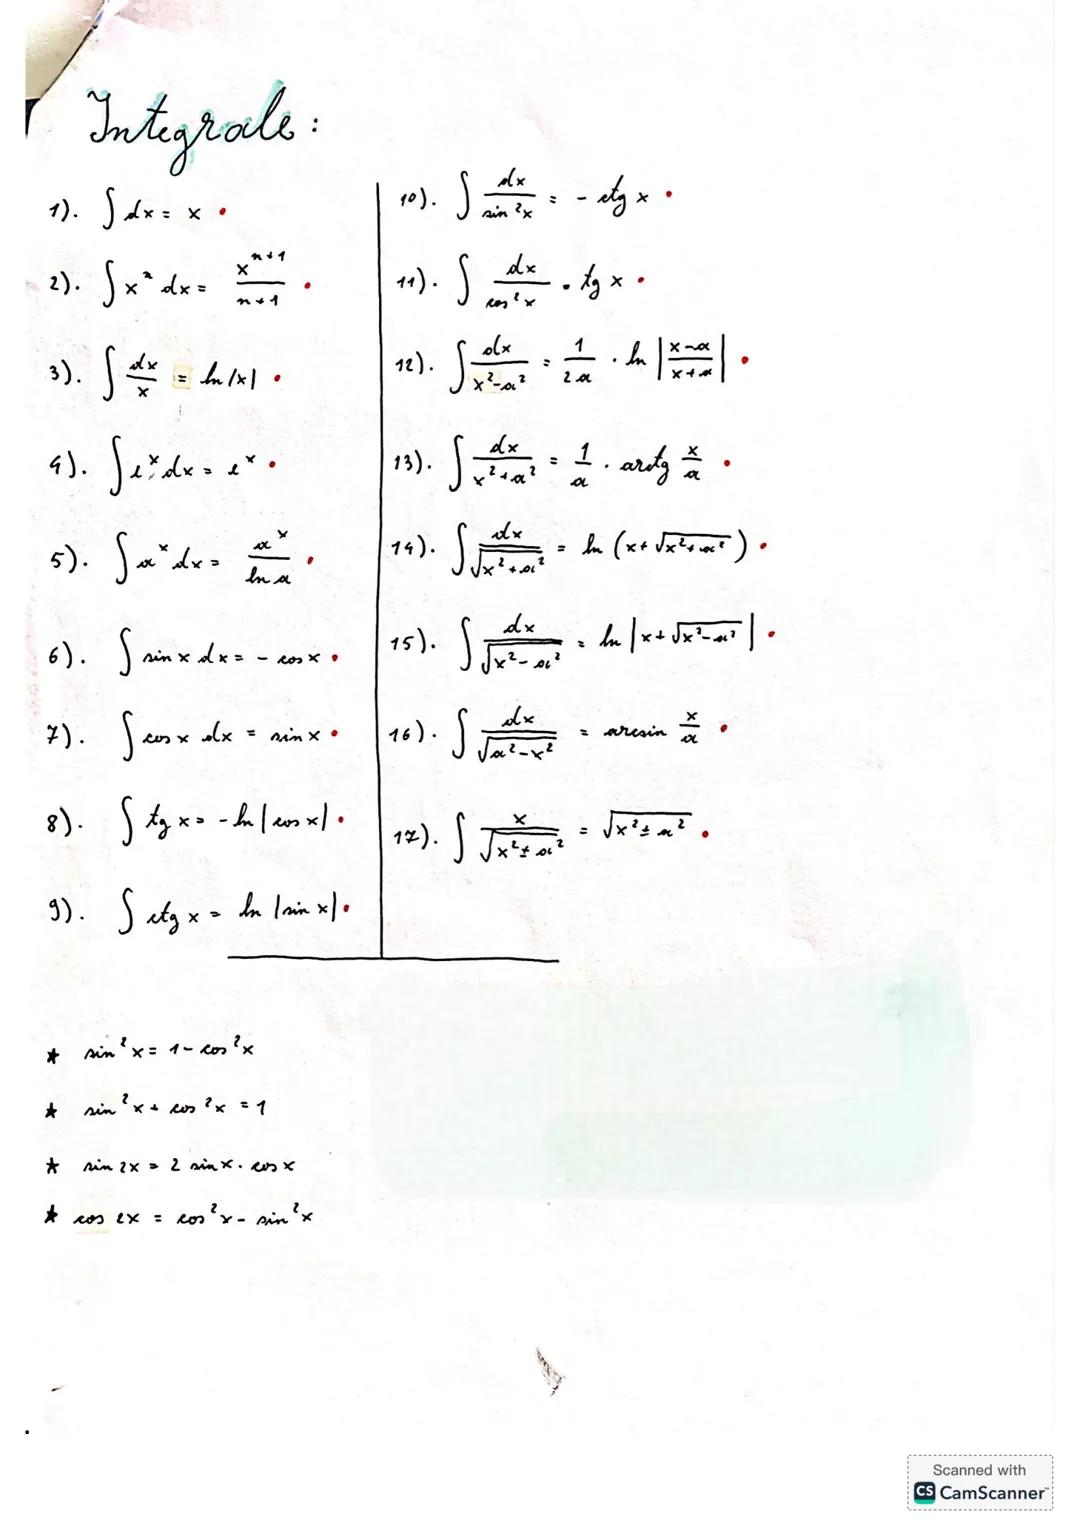 Integrale:
1). ∫ dx = x
2). ∫ xⁿ dx = xⁿ⁺¹ / n+1
3). ∫ dx/x = ln |x|
4). ∫ eˣ dx = eˣ
5). ∫ aˣ dx = aˣ / ln a
6). ∫ sin x dx = - cos x
7). ∫ cos x dx = sin x
8). ∫ tg x = - ln | cos x |
9). ∫ ctg x = ln | sin x |
10). ∫ dx / sin²x = - ctg x
11). ∫ dx / cos²x = tg x
12). ∫ dx / x²-a² = 1/2a · ln | x-a / x+a |
13). ∫ dx / x²+a² = 1/a · arctg x/a
14). ∫ dx / √x²+a² = ln (x+ √x²+a²)
15). ∫ dx / √x²-a² = ln | x+ √x²-a² |
16). ∫ dx / √a²-x² = arcsin x/a
17). ∫ x / √x²±a² = √x²±a²
★ sin²x = 1 - cos²x
★ sin²x + cos²x = 1
★ sin 2x = 2 sin x · cos x
★ cos 2x = cos²x - sin²x
Scanned with
CS CamScanner™